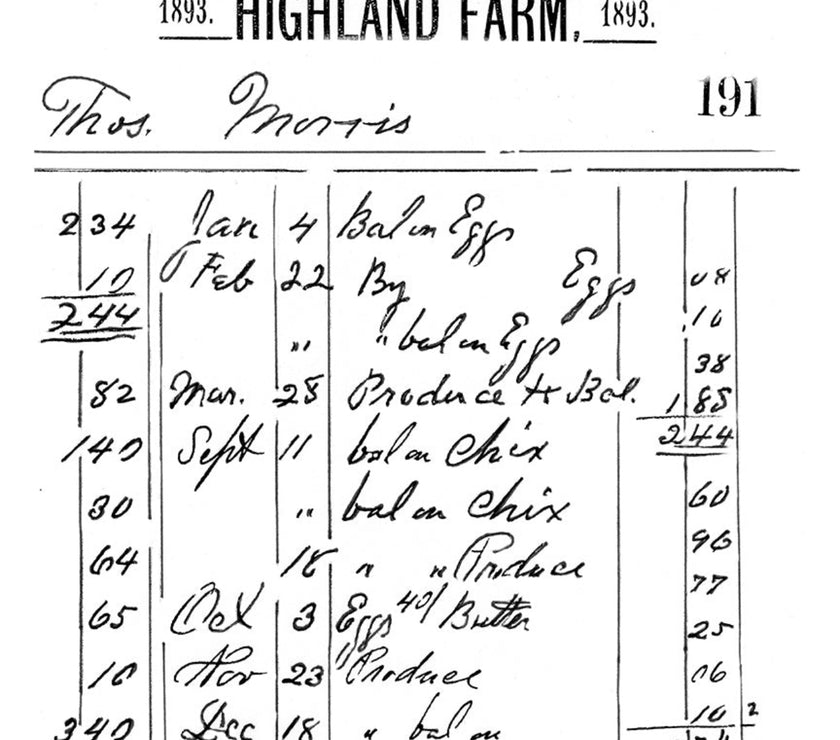 1893. HIGHLAND FARM, 1893.
Thos. Morris 191
2 34 Jan 4 Bal on Eggs
10 Feb 22 By Eggs 08
2 44 .10
" " bal on Eggs 38
82 Mar. 28 Produce & Bal. 1 88
2 44
1 40 Sept 11 bal on Chix
30 " bal on Chix 60
96
64 18 " " Produce 77
65 Oct 3 Eggs 40/ Butter 25
10 Nov 23 " Produce 06
3 40 Dec 18 " bal on 10 2